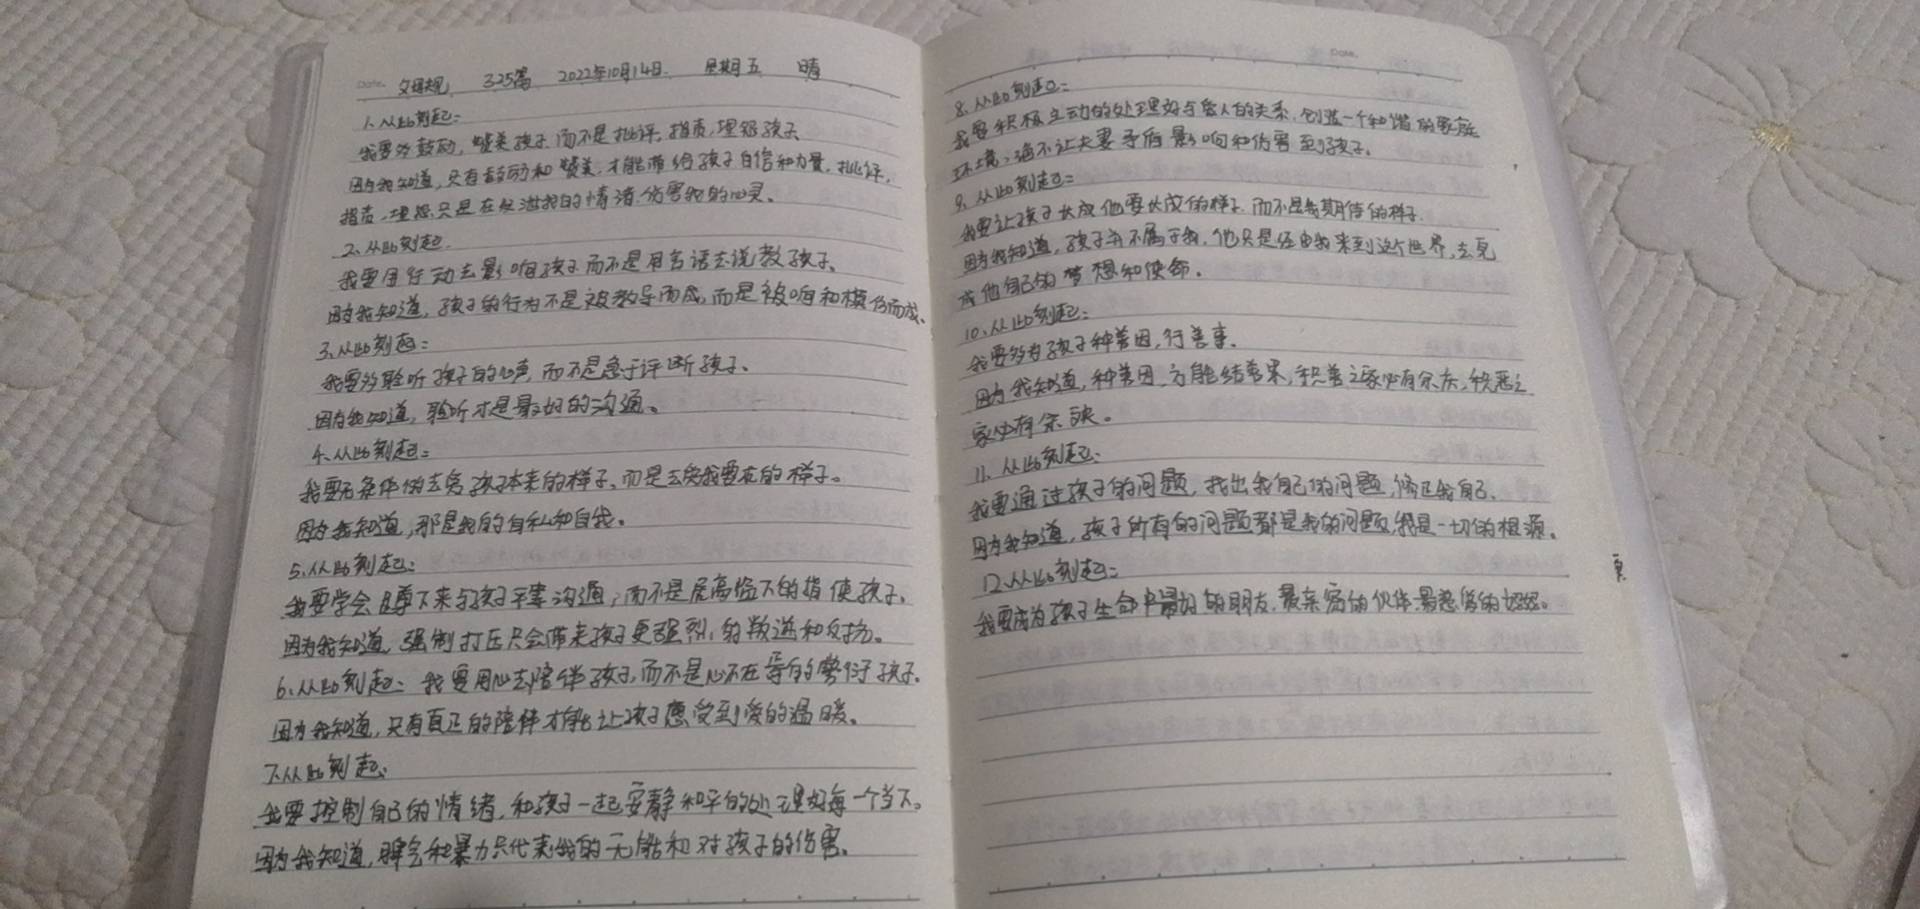 Date. 父母规 325篇 2022年10月14日. 星期五 晴
1.从此刻起:
我要多鼓励,赞美孩子而不是批评,指责,埋怨孩子
因为我知道,只有鼓励和赞美,才能带给孩子自信和力量,批评,
指责,埋怨只是在发泄我的情绪,伤害我的心灵。
2、从此刻起.
我要用行动去影响孩子而不是用言语去说教孩子。
因为我知道,孩子的行为不是被教导而成,而是被响和模仿而成、
3、从此刻起:
我要多聆听孩子的心声,而不是急于评断孩子、
因为我知道,聆听才是最好的沟通。
4、从此刻起:
我要无条件的去爱孩子本来的样子、而是去爱我要在的样子。
因为我知道,那是我的自私和自我。
5、从此刻起:
我要学会蹲下来与孩子平等沟通,而不是居高临下的指使孩子、
因为我知道,强制打压只会带来孩子更强烈,的叛逆和反抗。
6、从此刻起: 我要用心去陪伴孩子,而不是心不在焉的敷衍孩子、
因为我知道,只有真正的陪伴才能让孩子感受到爱的温暖。
7、从此刻起:
我要控制自己的情绪,和孩子一起安静和平的处理好每一个当下。
因为我知道,脾气和暴力只代表我的无能和对孩子的伤害。
Date.
8、从此刻起:
我要积极主动的处理好与爱人的关系,创造一个和谐的家庭
环境,绝不让夫妻矛盾影响和伤害到孩子。
9、从此刻起:
我要让孩子长成他要长成的样子,而不是我期待的样子.
因为我知道,孩子并不属于我,他只是经由我来到这个世界,去完
成他自己的梦想和使命。
10、从此刻起:
我要多为孩子种善因,行善事。
因为我知道,种善因,方能结善果,积善之家必有余庆,积恶之
家必有余殃。
11、从此刻起:
我要通过孩子的问题,找出我自己的问题,修正我自己、
因为我知道,孩子所有的问题都是我的问题,我是一切的根源。
12、从此刻起:
我要成为孩子生命中最好的朋友,最亲密的伙伴,最慈爱的妈妈。